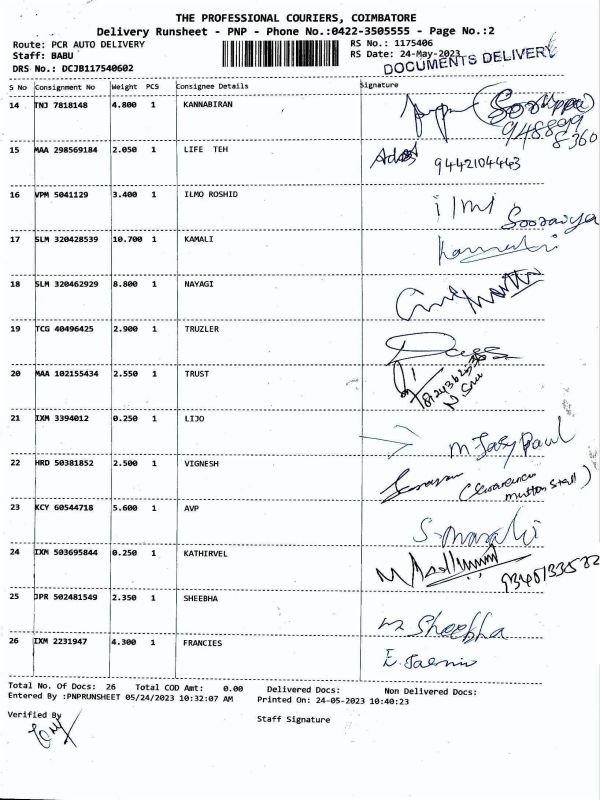 THE PROFESSIONAL COURIERS, COIMBATORE
Delivery Runsheet - PNP - Phone No.:0422-3505555 - Page No.:2
Route: PCR AUTO DELIVERY RS No.: 1175406
Staff: BABU RS Date: 24-May-2023
DRS No.: DCJB117540602 DOCUMENTS DELIVERY
S No Consignment No Weight PCS Consignee Details Signature
14 TNJ 7818148 4.800 1 KANNABIRAN
15 MAA 298569184 2.050 1 LIFE TEH 9442104443
16 VPM 5041129 3.400 1 ILMO ROSHID Sooraiya
17 SLM 320428539 10.700 1 KAMALI
18 SLM 320462929 8.800 1 NAYAGI
19 TCG 40496425 2.900 1 TRUZLER
20 MAA 102155434 2.550 1 TRUST
21 IXM 3394012 0.250 1 LIJO
22 HRD 50381852 2.500 1 VIGNESH
mutton stall)
23 KCY 60544718 5.600 1 AVP
24 IXM 503695844 0.250 1 KATHIRVEL
25 JPR 502481549 2.350 1 SHEEBHA Sheebha
26 IXM 2231947 4.300 1 FRANCIES
Total No. Of Docs: 26 Total COD Amt: 0.00 Delivered Docs: Non Delivered Docs:
Entered By :PNPRUNSHEET 05/24/2023 10:32:07 AM Printed On: 24-05-2023 10:40:23
Verified By Staff Signature